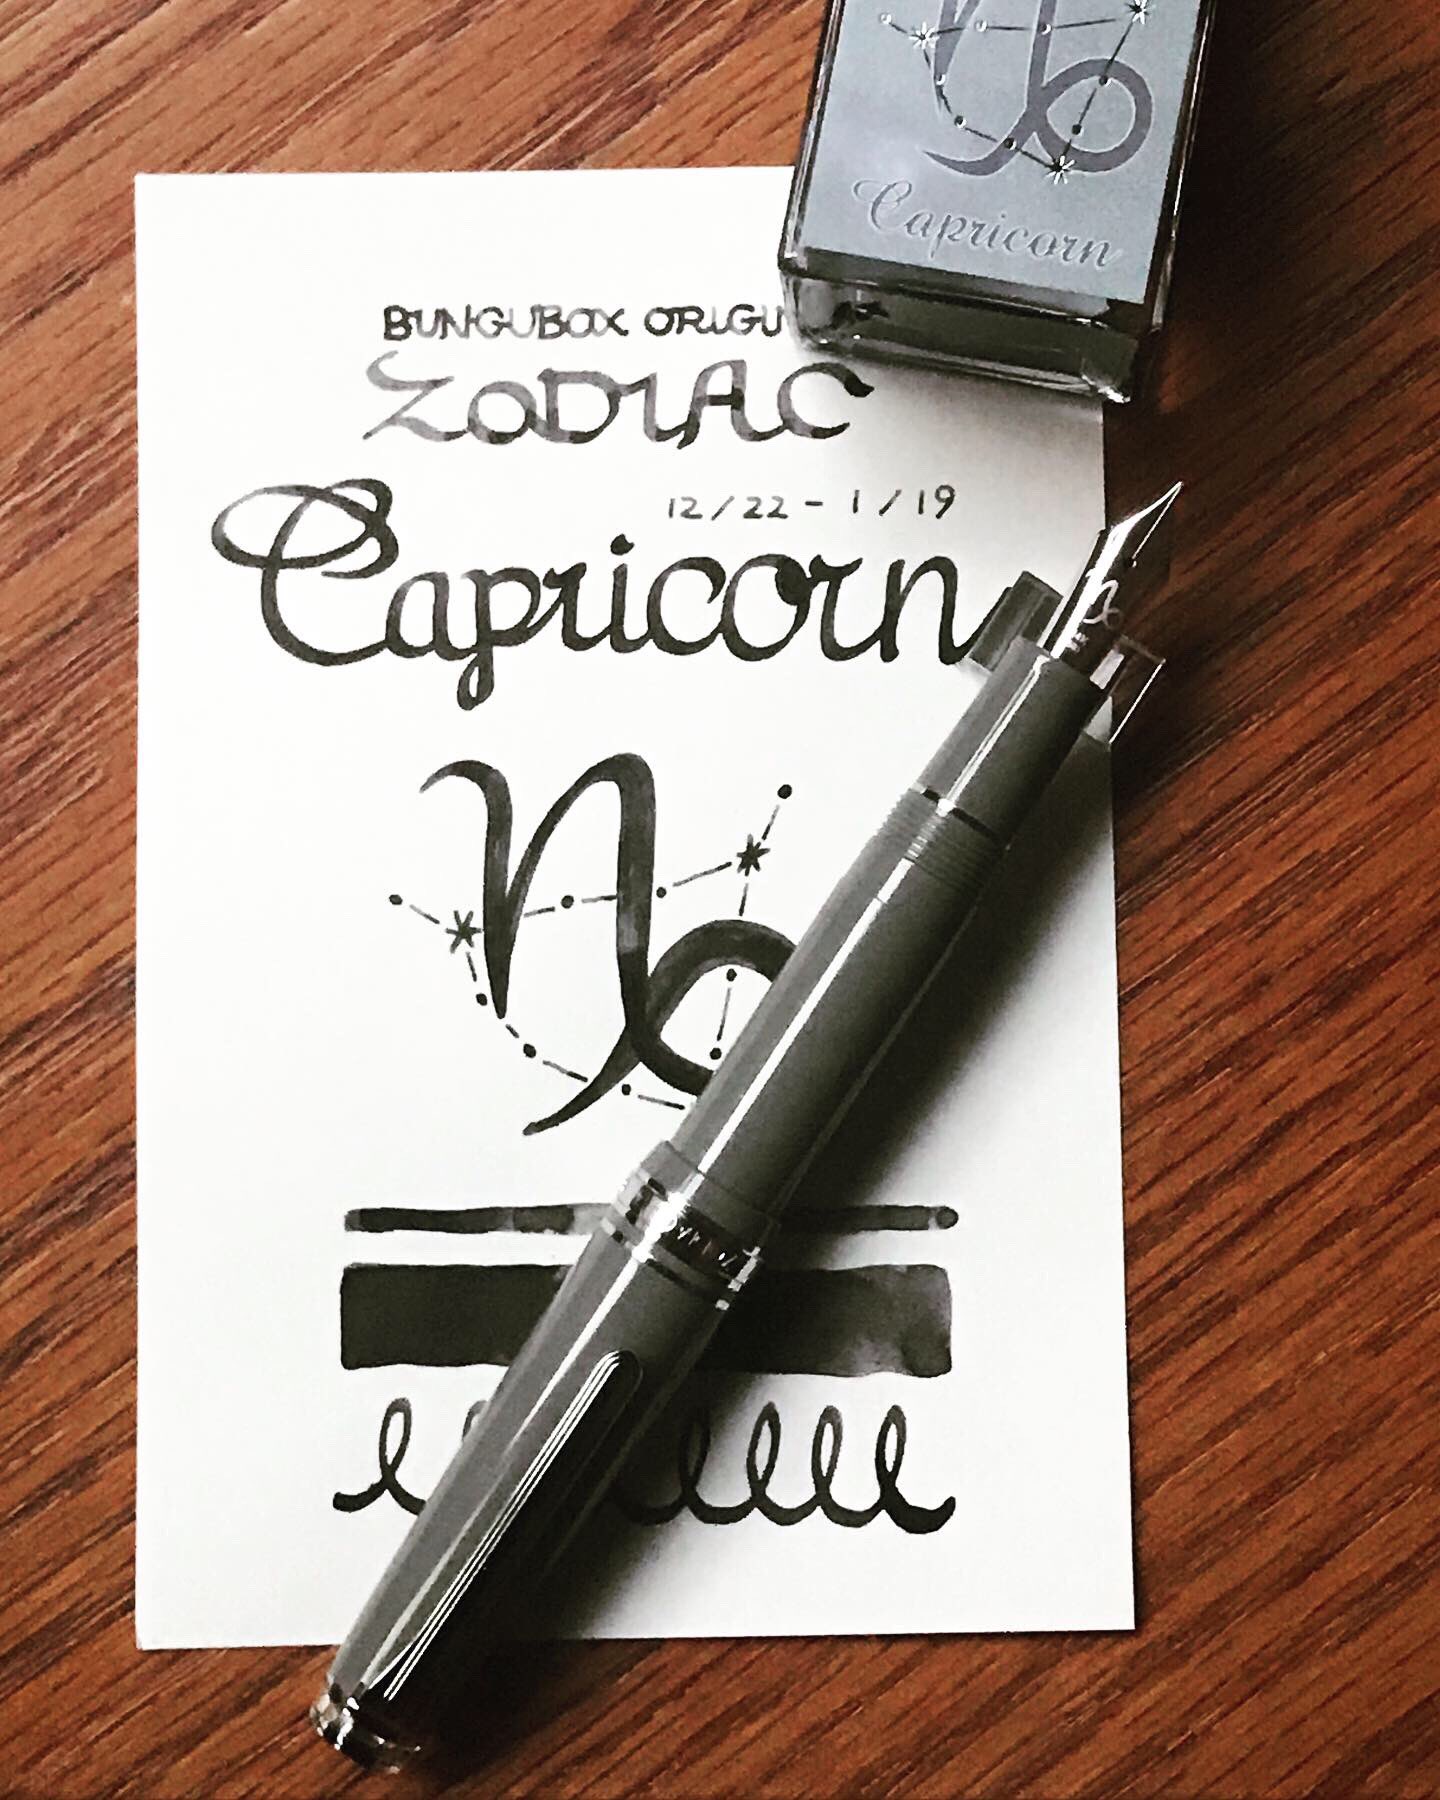 Capricorn
BUNGUBOX
ZODIAC
12/22 - 1/19
Capricorn